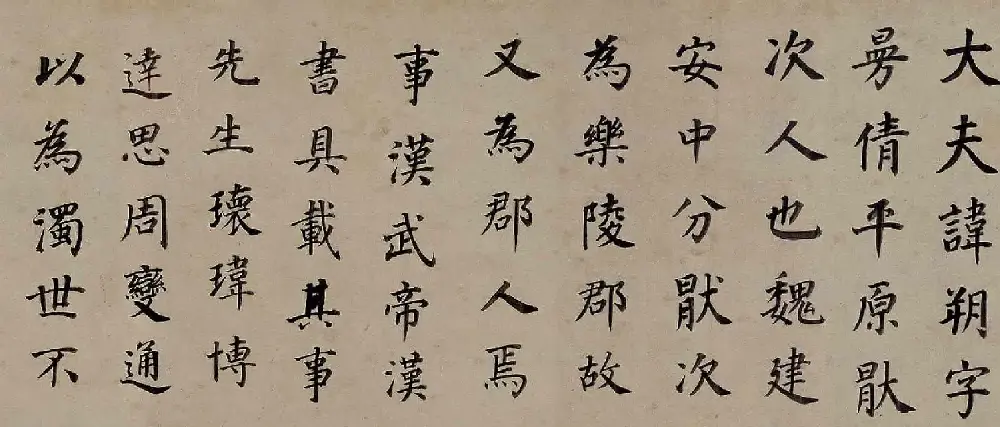 大夫諱朔字
曼倩平原厭
次人也魏建
安中分厭次
為樂陵郡故
又為郡人焉
事漢武帝漢
書具載其事
先生瓌瑋博
達思周變通
以為濁世不